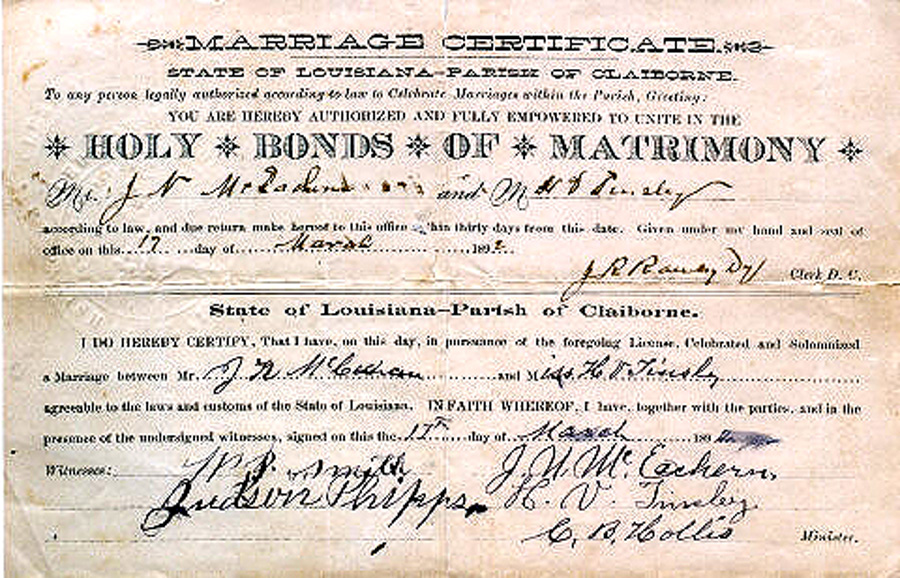 MARRIAGE CERTIFICATE.
STATE OF LOUISIANA-PARISH OF CLAIBORNE.
To any person legally authorized according to law to Celebrate Marriages within the Parish, Greeting:
YOU ARE HEREBY AUTHORIZED AND FULLY EMPOWERED TO UNITE IN THE
HOLY * BONDS * OF * MATRIMONY
Mr. J N and M H V Tinsley
according to law, and due return make hereof to this office within thirty days from this date. Given under my hand and seal of
office on this 17 day of March 1892
J R Dy Clerk D. C.
State of Louisiana-Parish of Claiborne.
I DO HEREBY CERTIFY, That I have, on this day, in pursuance of the foregoing License, Celebrated and Solemnized
a Marriage between Mr. J N and Miss H V Tinsley
agreeable to the laws and customs of the State of Louisiana. IN FAITH WHEREOF, I have, together with the parties, and in the
presence of the undersigned witnesses, signed on this the 17th day of March 189
Witnesses: W. P. Smith J. N. McEachern,
Judson Phipps, H. V. Tinsley
C. B. Hollis Minister.